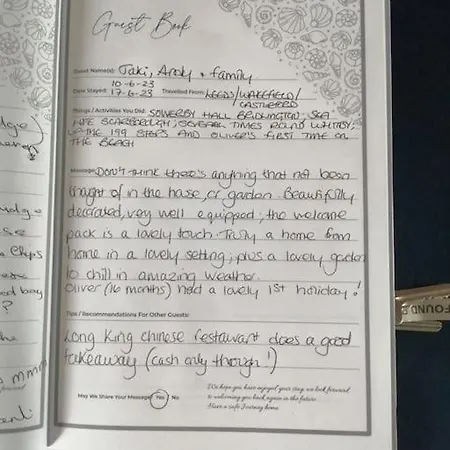 Guest Book
Guest Name(s): Jaki, Andy + family
Date Stayed: 10-6-23
17-6-23 Travelled From: LEEDS/WAKEFIELD/
CASTLEFORD
Things / Activities You Did: SOWERBY HALL BRIDLINGTON, SEA
LIFE SCARBOROUGH, SEVERAL TIMES ROUND WHITBY,
UP THE 199 STEPS AND OLIVER'S FIRST TIME ON
THE BEACH
Message: Don't think there's anything that not been
thought of in the house, or garden. Beautifully
decorated, very well equipped, the welcome
pack is a lovely touch. Truly a home from
home in a lovely setting; plus a lovely garden
to chill in amazing weather.
Oliver (16 months) had a lovely 1st holiday!
Tips / Recommendations For Other Guests:
Long King chinese restaurant does a good
takeaway (cash only though!)
May We Share Your Message? Yes No
We hope you have enjoyed your stay, we look forward
to welcoming you back again in the future.
Have a safe Journey home
FOUND